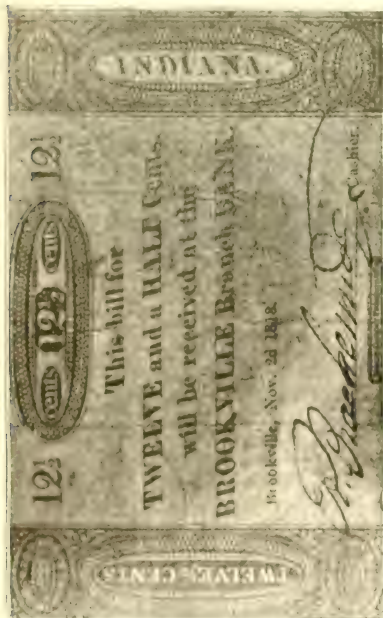 INDIANA.
12½ cents 12½ cents 12½
This bill for
TWELVE and a HALF Cents.
will be received at the
BROOKVILLE Branch BANK.
Brookville, Nov. 2d 1818.
Cashier.
TWELVE½ CENTS